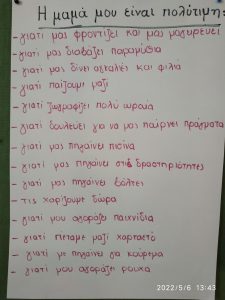 Η μαμά μου είναι πολύτιμη:
-γιατί μας φροντίζει και μας μαγειρεύει
-γιατί μας διαβάζει παραμύθια
-γιατί μας δίνει αγκαλιές και φιλιά
-γιατί παίζουμε μαζί
-γιατί ζωγραφίζει πολύ ωραία
-γιατί δουλεύει για να μας παίρνει πράγματα
-γιατί μας πηγαίνει πισίνα
-γιατί μας πηγαίνει στις δραστηριότητες
-γιατί μας πηγαίνει βόλτες
-τις χαρίζουμε δώρα
-γιατί μου αγοράζει παιχνίδια
-γιατί πετάμε μαζί χαρταετό
-γιατί με πηγαίνει για κούρεμα
-γιατί μου αγοράζει ρούχα
2022/5/6 13:43